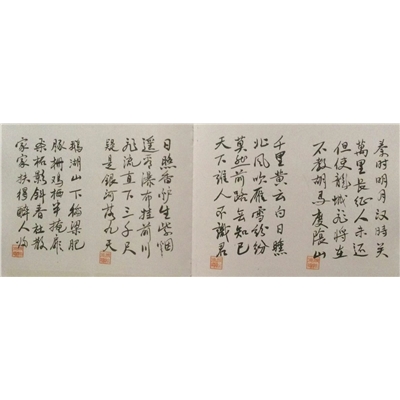 秦时明月汉时关
萬里长征人未还
但使龍城飛将在
不教胡马度陰山
千里黄云白日曛
北风吹雁雪纷纷
莫愁前路无知己
天下谁人不識君
日照香炉生紫烟
遥看瀑布挂前川
飛流直下三千尺
疑是银河落九天
鹅湖山下稻粱肥
豚栅鸡栖半掩扉
桑柘影斜春社散
家家扶得醉人归